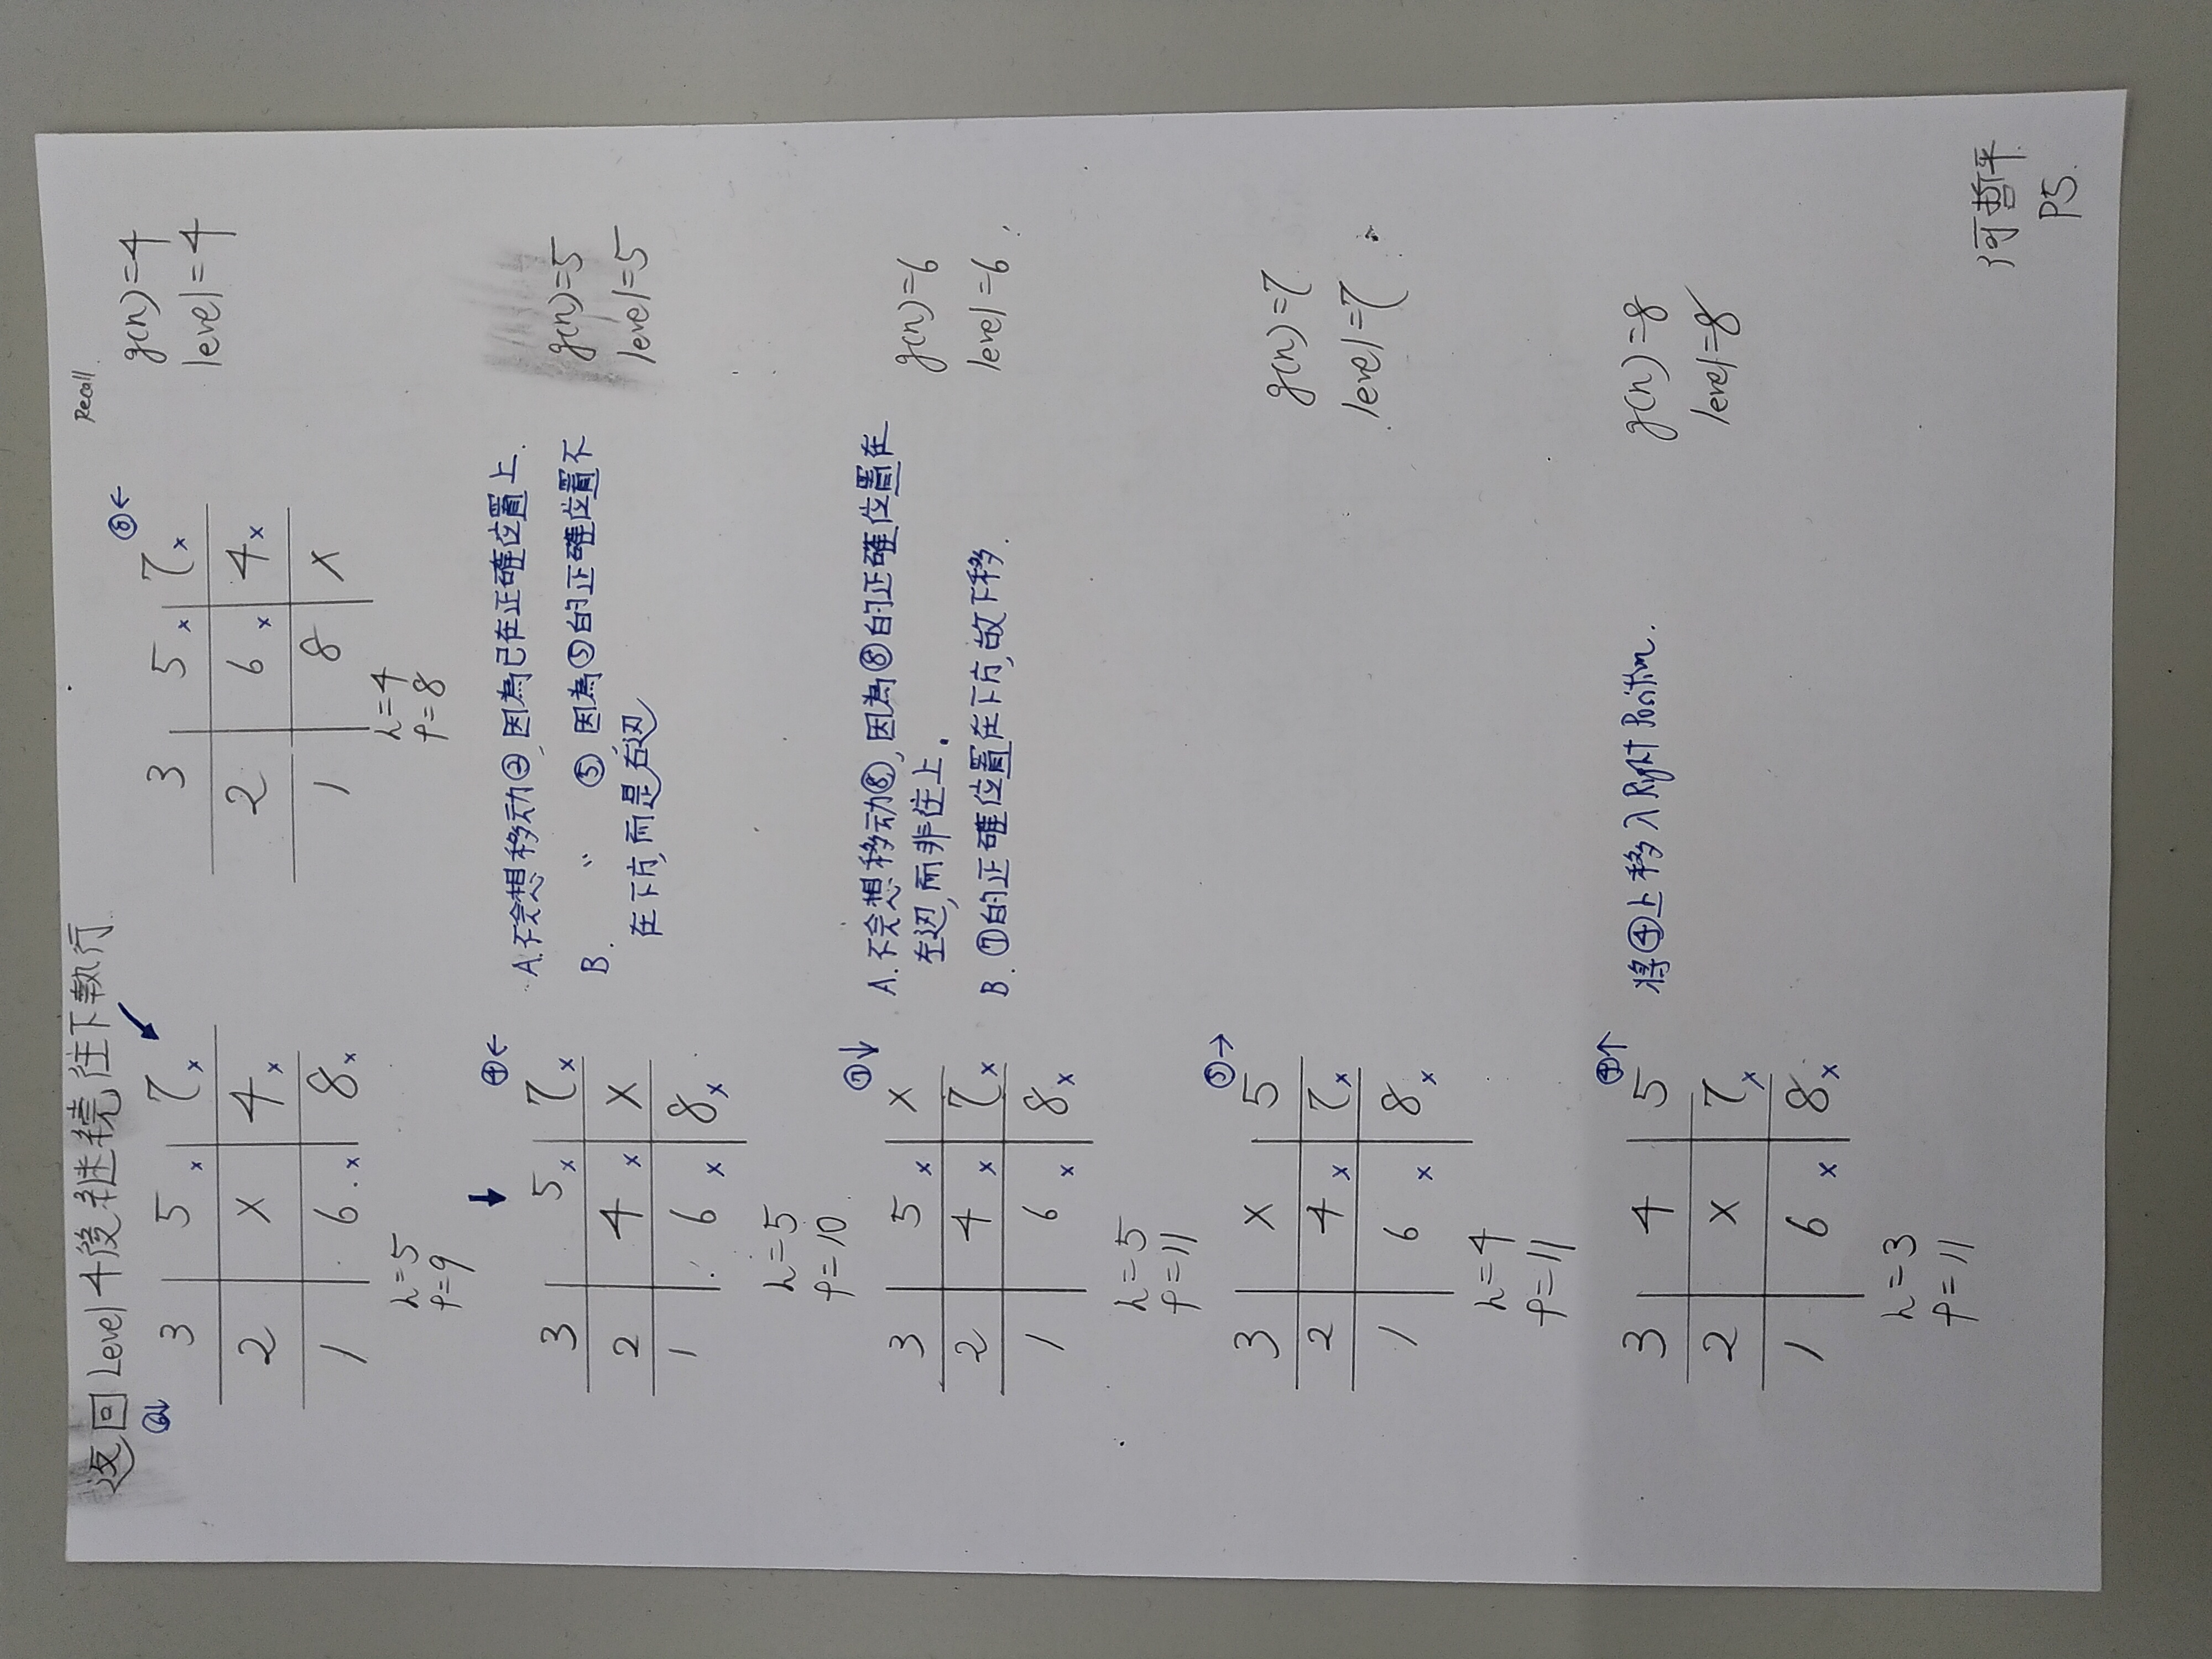 返回Level 4後継続往下執行
Recall.
⑥↓
3 5 x 7 x
2 X 4 x
1 6 x 8 x
h=5
f=9
⑧←
3 5 x 7 x
2 6 x 4 x
1 8 X
h=4
f=8
g(n)=4
level=4
④←
3 5 x 7 x
2 4 x X
1 6 x 8 x
h=5
f=10
A.不会想移动②,因為已在正確位置上.
B. 〃 ⑤,因為⑤的正確位置不
在下方,而是右边
g(n)=5
level=5
⑦↓
3 5 x X
2 4 x 7 x
1 6 x 8 x
h=5
f=11
A.不会想移动⑧,因為⑧的正確位置在
左边,而非往上.
B.⑦的正確位置在下方,故下移.
g(n)=6
level=6
⑤→
3 X 5
2 4 x 7 x
1 6 x 8 x
h=4
f=11
g(n)=7
level=7
④↑
3 4 5
2 X 7 x
1 6 x 8 x
h=3
f=11
将④上移入Right Position.
g(n)=8
level=8
何哲平
P5.